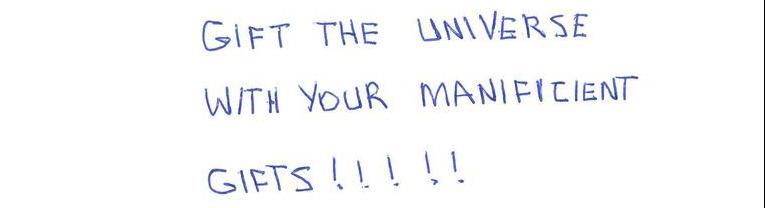 GIFT THE UNIVERSE
WITH YOUR MANIFICIENT
GIFTS!!!!!